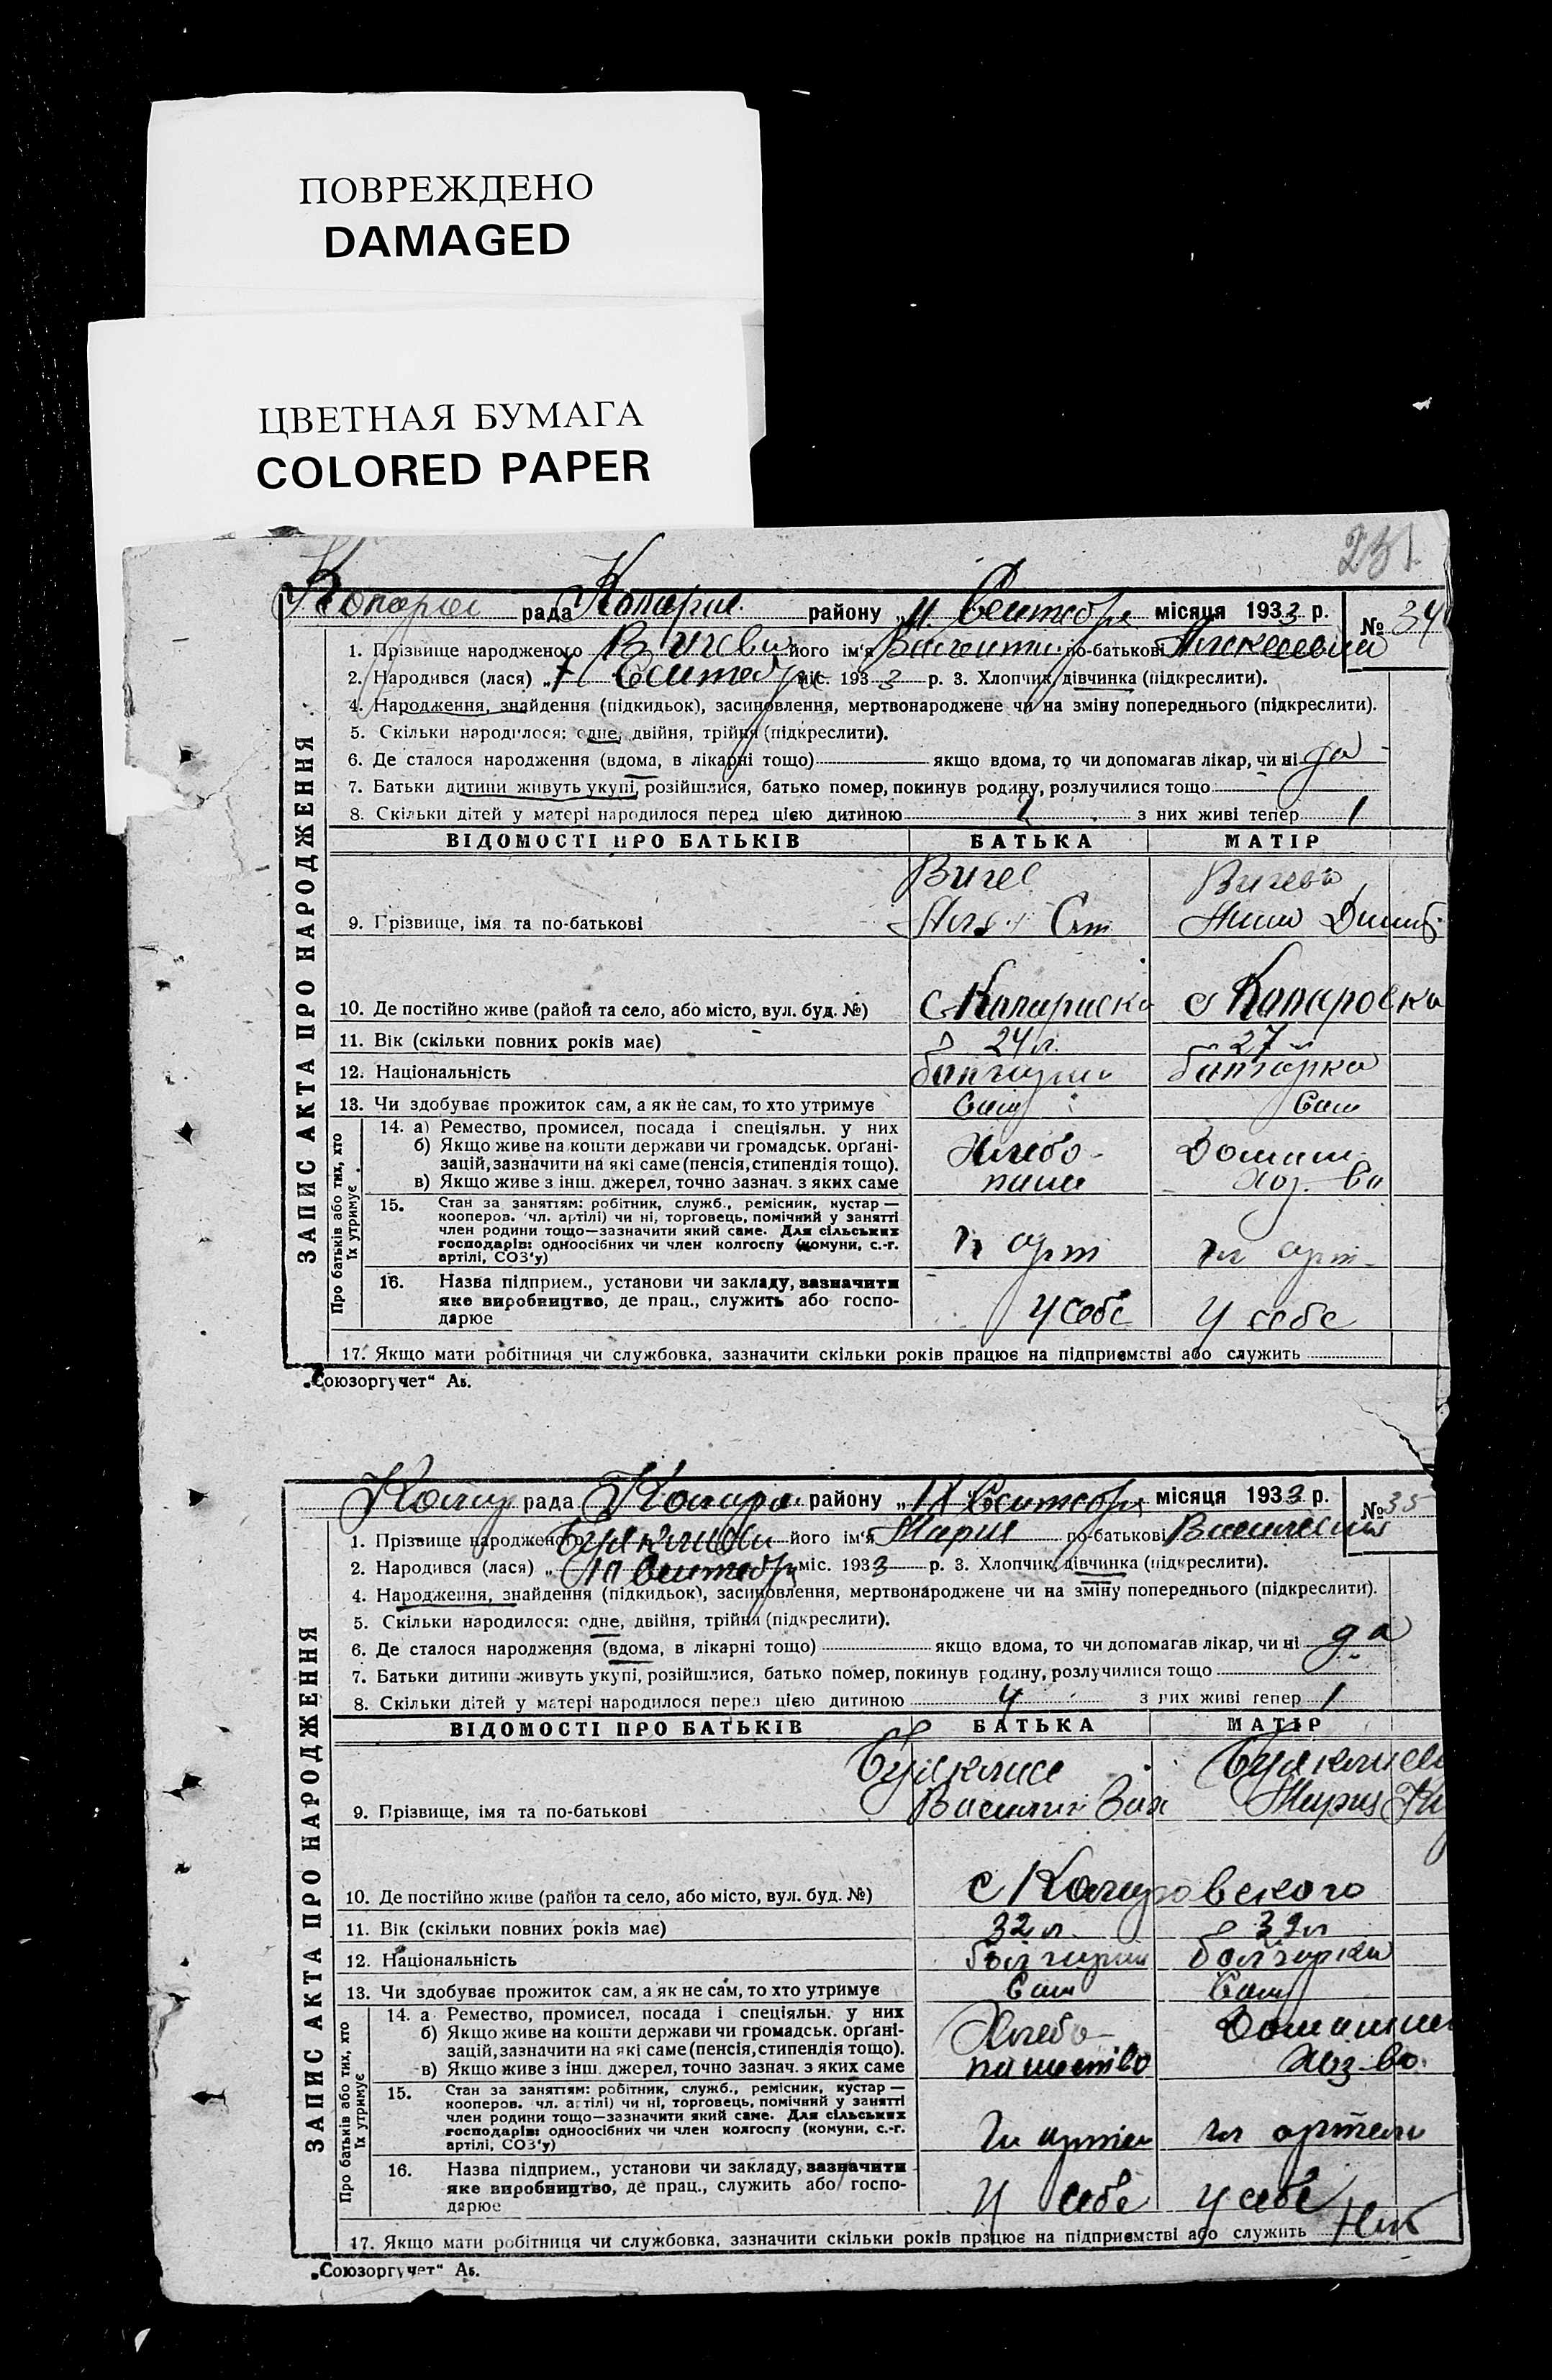 ПОВРЕЖДЕНО
DAMAGED
ЦВЕТНАЯ БУМАГА
COLORED PAPER
231
рада району „11 Сентября місяця 1933 р.
№ 34
1. Прізвище народженого його ім'я по-батькові Алексеевна
2. Народився (лася) „7 Сентября міс. 1933 р. 3. Хлопчик, дівчинка (підкреслити).
4. Народження, знайдення (підкидьок), засиновлення, мертвонароджене чи на зміну попереднього (підкреслити).
5. Скільки народилося: одне, двійня, трійня (підкреслити).
6. Де сталося народження (вдома, в лікарні тощо) якщо вдома, то чи допомагав лікар, чи ні да
7. Батьки дитини живуть укупі, розійшлися, батько помер, покинув родину, розлучилися тощо
8. Скільки дітей у матері народилося перед цією дитиною 1 з них живі тепер 1
ЗАПИС АКТА ПРО НАРОДЖЕННЯ
ВІДОМОСТІ ПРО БАТЬКІВ БАТЬКА МАТІР
9. Прізвище, імя та по-батькові
10. Де постійно живе (район та село, або місто, вул. буд. №)
11. Вік (скільки повних років має) 24 л. 27 л
12. Національність болгарин болгарка
13. Чи здобуває прожиток сам, а як не сам, то хто утримує Сам Сам
Про батьків або тих, хто їх утримує
14. а) Ремество, промисел, посада і спеціяльн. у них
б) Якщо живе на кошти держави чи громадськ. орґані-
зацій, зазначити на які саме (пенсія, стипендія тощо). Хлебо- Домашн
в) Якщо живе з інш. джерел, точно зазнач. з яких саме паш Хоз. Во
15. Стан за заняттям: робітник, служб., ремісник, кустар —
кооперов. чл. артілі) чи ні, торговець, помічний у занятті
член родини тощо—зазначити який саме. Для сільських
господарів: одноосібних чи член колгоспу (комуни, с.-г.
артілі, СОЗ'у) чл арт чл арт
16. Назва підприєм., установи чи закладу, зазначити
яке виробництво, де прац., служить або госпо-
дарює у себе у себе
17. Якщо мати робітниця чи службовка, зазначити скільки років працює на підприємстві або служить
„Союзоргучет" Ав.
рада району „ Сентября місяця 1933 р.
№ 35
1. Прізвище народженого його ім'я Мария по-батькові Васильевна
2. Народився (лася) „10 Сентября міс. 1933 р. 3. Хлопчик, дівчинка (підкреслити).
4. Народження, знайдення (підкидьок), засиновлення, мертвонароджене чи на зміну попереднього (підкреслити).
5. Скільки народилося: одне, двійня, трійня (підкреслити).
6. Де сталося народження (вдома, в лікарні тощо) якщо вдома, то чи допомагав лікар, чи ні да
7. Батьки дитини живуть укупі, розійшлися, батько помер, покинув родину, розлучилися тощо
8. Скільки дітей у матері народилося перед цією дитиною 4 з них живі тепер 1
ЗАПИС АКТА ПРО НАРОДЖЕННЯ
ВІДОМОСТІ ПРО БАТЬКІВ БАТЬКА МАТІР
9. Прізвище, імя та по-батькові Василий Мария
10. Де постійно живе (район та село, або місто, вул. буд. №)
11. Вік (скільки повних років має) 32 л. 32 л
12. Національність болгарин болгарка
13. Чи здобуває прожиток сам, а як не сам, то хто утримує Сам Сам
Про батьків або тих, хто їх утримує
14. а Ремество, промисел, посада і спеціяльн. у них
б) Якщо живе на кошти держави чи громадськ. орґані- Хлебо- Домашн
зацій, зазначити на які саме (пенсія, стипендія тощо).
в) Якщо живе з інш. джерел, точно зазнач. з яких саме пашество Хоз-во.
15. Стан за заняттям: робітник, служб., ремісник, кустар —
кооперов. чл. артілі) чи ні, торговець, помічний у занятті
член родини тощо—зазначити який саме. Для сільських
господарів: одноосібних чи член колгоспу (комуни, с.-г.
артілі, СОЗ'у) чл артели чл артели
16. Назва підприєм., установи чи закладу, зазначити
яке виробництво, де прац., служить або госпо-
дарює у себе у себе
17. Якщо мати робітниця чи службовка, зазначити скільки років працює на підприємстві або служить
„Союзоргучет" Ав.